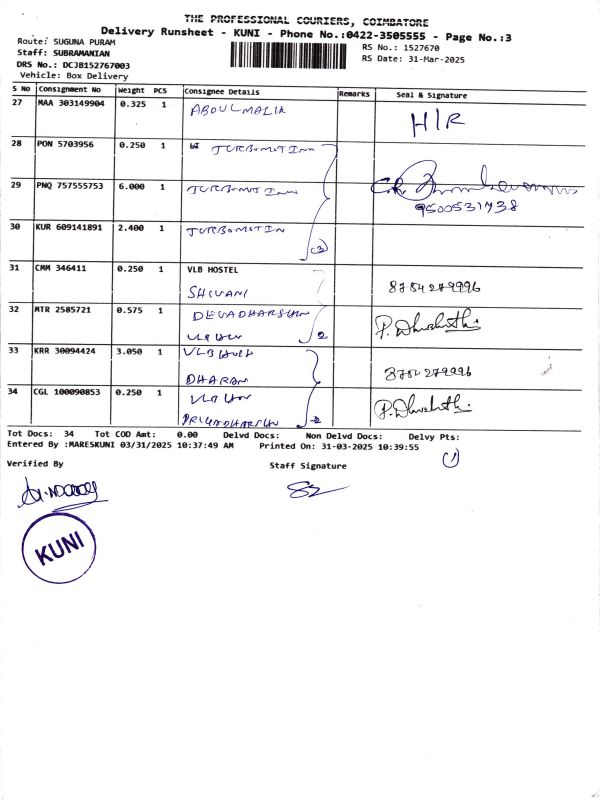 THE PROFESSIONAL COURIERS, COIMBATORE
Delivery Runsheet - KUNI - Phone No.:0422-3505555 - Page No.:3
Route: SUGUNA PURAM
RS No.: 1527670
Staff: SUBRAMANIAN
RS Date: 31-Mar-2025
DRS No.: DCJB152767003
Vehicle: Box Delivery
S No Consignment No Weight PCS Consignee Details Remarks Seal & Signature
27 MAA 303149904 0.325 1 ABDULMALIK
H/R
28 PON 5703956 0.250 1 TURBOMOT Inn
29 PNQ 757555753 6.000 1 TURBOMOT Inn
9500531738
30 KUR 609141891 2.400 1 TURBOMOTIN
(3)
31 CMM 346411 0.250 1 VLB HOSTEL
SHIVANI 8754279996
32 MTR 2585721 0.575 1 DEVADHARSHN
2
33 KRR 30094424 3.050 1 VLB
DHARAN 8754279996
34 CGL 100090853 0.250 1
PRIYADHARSHN
Tot Docs: 34 Tot COD Amt: 0.00 Delvd Docs: Non Delvd Docs: Delvy Pts:
Entered By :MARESKUNI 03/31/2025 10:37:49 AM Printed On: 31-03-2025 10:39:55
Verified By Staff Signature
KUNI